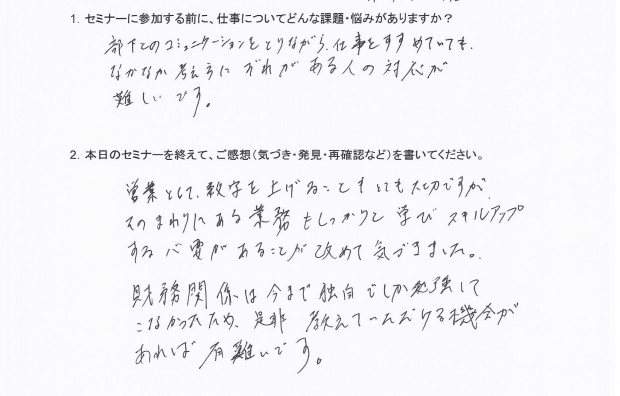 1. セミナーに参加する前に、仕事についてどんな課題・悩みがありますか？
部下とのコミュニケーションをとりながら、仕事をすすめていても、
なかなか考え方にずれがある人の対応が
難しいです。
2. 本日のセミナーを終えて、ご感想（気づき・発見・再確認など）を書いてください。
営業として、数字を上げることもとても大切ですが、
そのまわりにある業務もしっかりと学びスキルアップ
する必要があることが改めて気づきました。
財務関係は今まで独自でしか勉強して
こなかったため、是非教えていただける機会が
あれば有難いです。